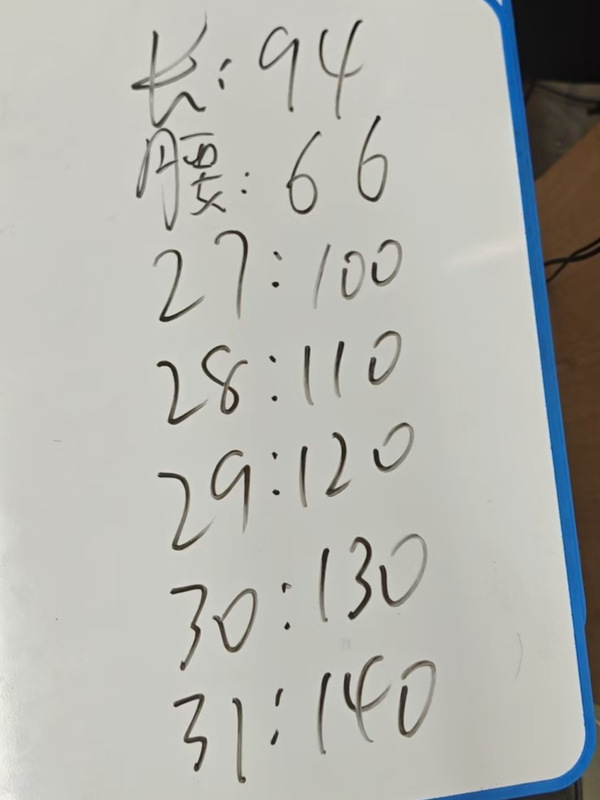 长:94
腰:66
27:100
28:110
29:120
30:130
31:140